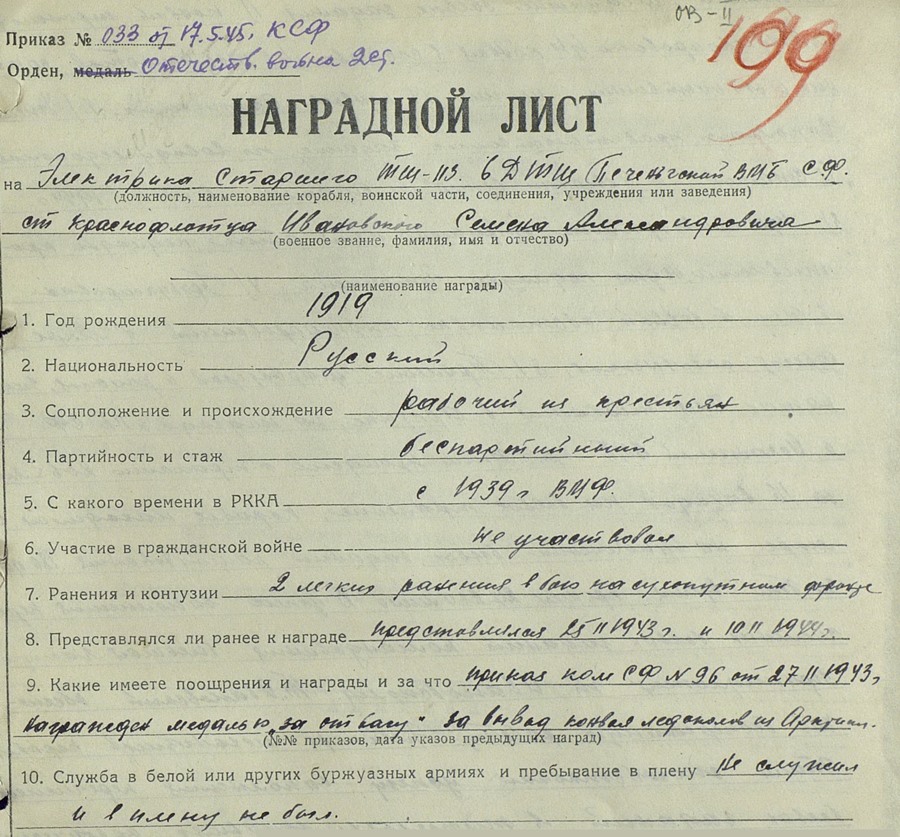 ОВ-II
199
Приказ № 033 от 17.5.45. КСФ
Орден, медаль Отечеств. война 2 ст.
НАГРАДНОЙ ЛИСТ
на Электрика Старшего ТЩ-113. 6 ДТЩ Печенгской ВМБ СФ.
(должность, наименование корабля, воинской части, соединения, учреждения или заведения)
ст краснофлотца Ивановского Семена Александровича
(военное звание, фамилия, имя и отчество)
(наименование награды)
1. Год рождения 1919
2. Национальность Русский
3. Соцположение и происхождение рабочий из крестьян
4. Партийность и стаж беспартийный
5. С какого времени в РККА с 1939 г ВМФ.
6. Участие в гражданской войне не участвовал
7. Ранения и контузии 2 легких ранения в бою на сухопутном фронте
8. Представлялся ли ранее к награде представлялся 25 II 1943 г. и 10 II 1944 г.
9. Какие имеете поощрения и награды и за что приказ ком СФ N 96 от 27 II 1943 г
награжден медалью „за отвагу“ за вывод конвоя ледоколов из Арктики.
(№№ приказов, дата указов предыдущих наград)
10. Служба в белой или других буржуазных армиях и пребывание в плену Не служил
и в плену не был.